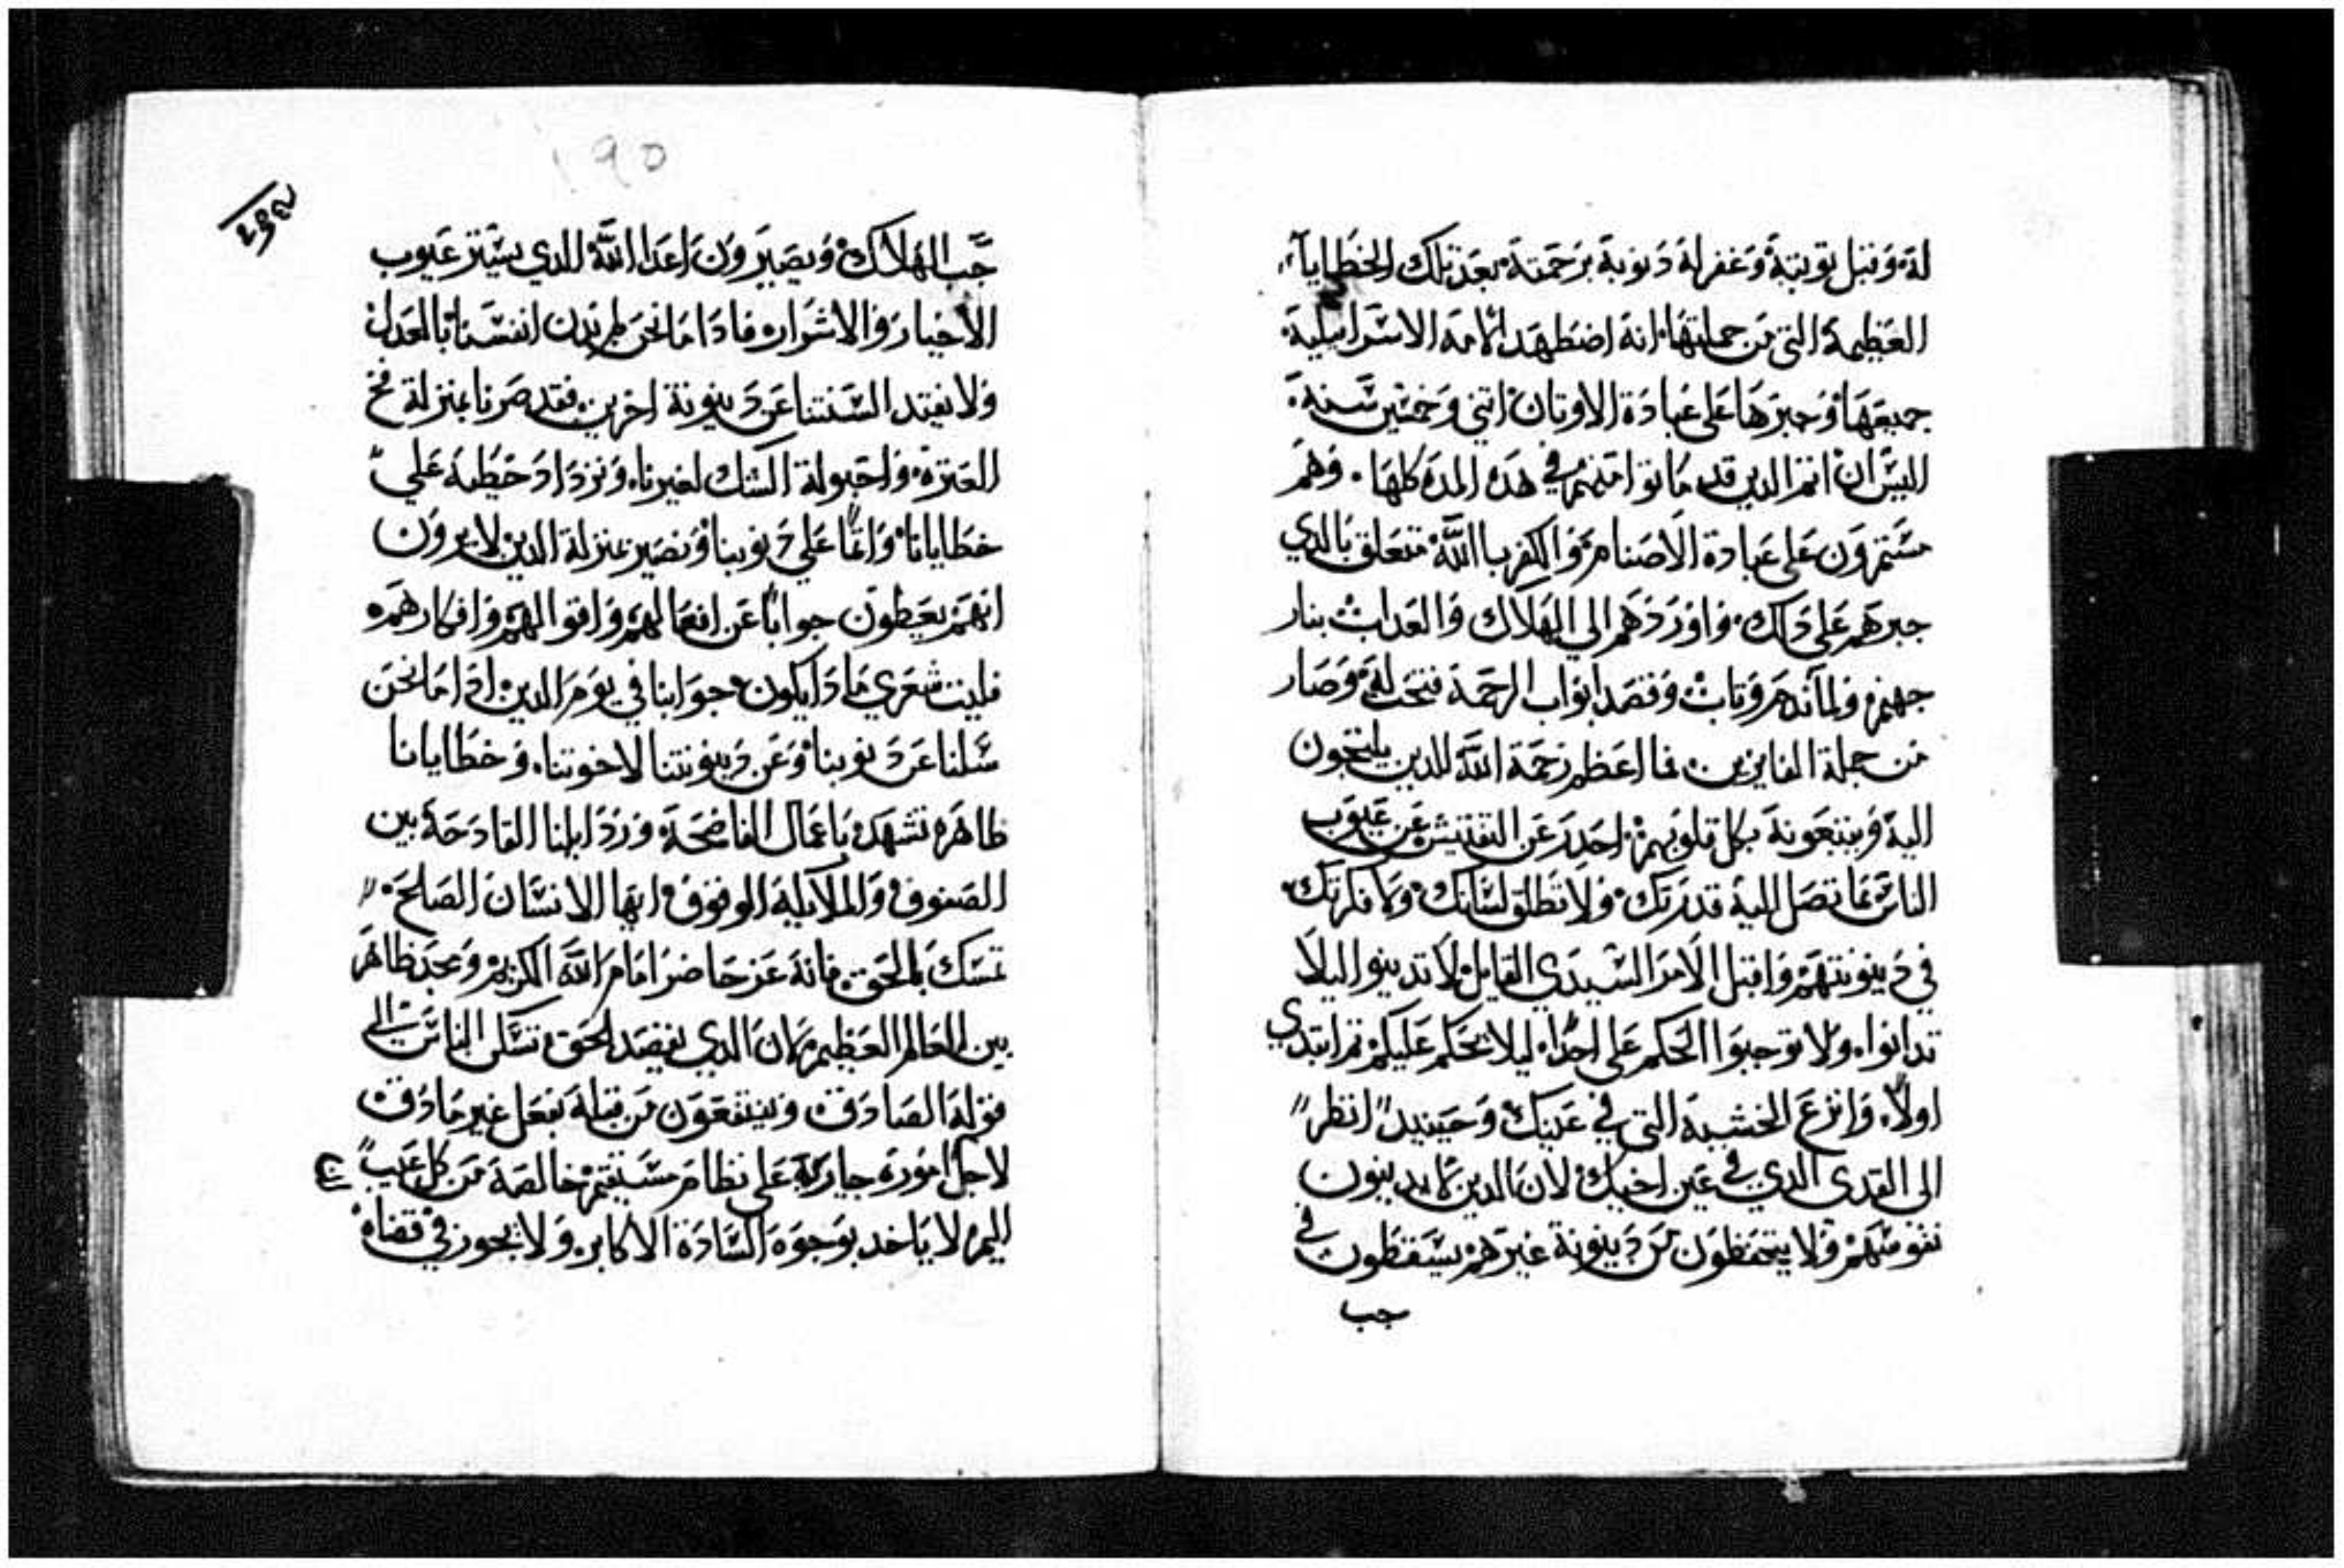 له وقبل توبته وغفر له دنوبه برحمته بعد تلك الخطايا
العظيمة التي من جملتها انه اضطهد الامه الاسراييلية
جميعها وجبرها على عبادة الاوتان اتني وخمسين سنه
اليس ان انم الدين قد ماتوا منهم في هده المده كلها وهم
مستمرون على عبادة الاصنام والكفر بالله متعلق بالدي
جبرهم على دلك واوردهم الي الهلاك والعداب بنار
جهنم ولما ندم وتاب وقصد ابواب الرحمة فتحت له وصار
من جملة الفايزين فما اعظم رحمة الله للدين يلتجون
اليه ويبتغونه بكل قلوبهم احدر عن التفتيش عن عيوب
الناس بما تصل اليه قدرتك ولا تطلق لسانك ولا فكرتك
في دينونتهم واقبل الامر السيدي القايل لا تدينوا ليلا
تدانوا ولا توجبوا الحكم على احدا ليلا يحكم عليكم تم ابتدي
اولا وانزع الخشبه التي في عينك وحينيد انظر
الى القدى الدي في عين اخيك لان الدين لا يدينون
نفوسهم ولا يتحفظون من دينونة غيرهم يسقطون في
جب
190
جب الهلاك ويصيرون اعدا الله الدي يستر عيوب
الاخيار والاشرار فادا ما نحن لم ندن انفسنا بالعدل
ولا نفيد السنتنا عن دينونة اخرين فقد صرنا بمنزلة فخ
العترة واحبولة الشك لغيرنا ونزداد خطيه علي
خطايانا واتما علي دنوبنا ونصير بمنزلة الدين لا يرون
انهم يعطون جوابا عن افعالهم واقوالهم وافكارهم
فليت شعري مادا يكون جوابنا في يوم الدين ادا ما نحن
سلنا عن دنوبنا وعن دينونتنا لاخوتنا وخطايانا
ظاهره تشهد باعمالنا الفاضحة ورداىلنا القادحة بين
الصفوف والملايكه الوقوف ايها الانسان الصالح
تمسك بالحق فانه عن حاضر امام الله الكريم وعد ظاهر
بين العالم العظيم لان الدي يقصد الحق تسكن الناس الي
قوله الصادق وينتفعون من قبله بفعل غير مادق
لاجل اموره جاريه على نظام مستقيم خالصة من كل عيب
اليم لا ياخد بوجوه السادة الاكابر ولا يجوز في قضاه